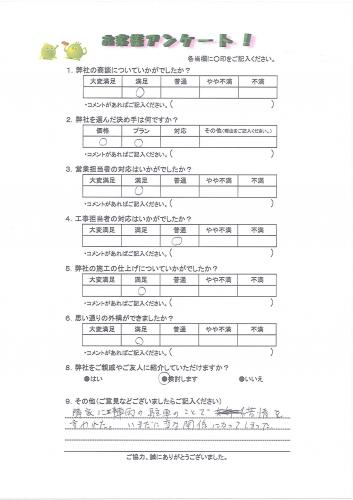 お客様アンケート！
各当欄に〇印をご記入ください。
1. 弊社の商談についていかがでしたか？
大変満足 満足 普通 やや不満 不満
○
・コメントがあればご記入ください。( )
2. 弊社を選んだ決め手は何ですか？
価格 プラン 対応 その他(理由をご記入ください。)
○ ○
・コメントがあればご記入ください。( )
3. 営業担当者の対応はいかがでしたか？
大変満足 満足 普通 やや不満 不満
○
・コメントがあればご記入ください。( )
4. 工事担当者の対応はいかがでしたか？
大変満足 満足 普通 やや不満 不満
○
・コメントがあればご記入ください。( )
5. 弊社の施工の仕上げについていかがでしたか？
大変満足 満足 普通 やや不満 不満
○
・コメントがあればご記入ください。( )
6. 思い通りの外構ができましたか？
大変満足 満足 普通 やや不満 不満
○
・コメントがあればご記入ください。( )
8. 弊社をご親戚やご友人に紹介していただけますか？
●はい ●検討します ●いいえ
9. その他(ご意見などございましたらご記入ください)
隣家に車両の駐車のことで 苦情を
言われた。いまだに変な関係になってしまった。
ご協力、誠にありがとうございました。